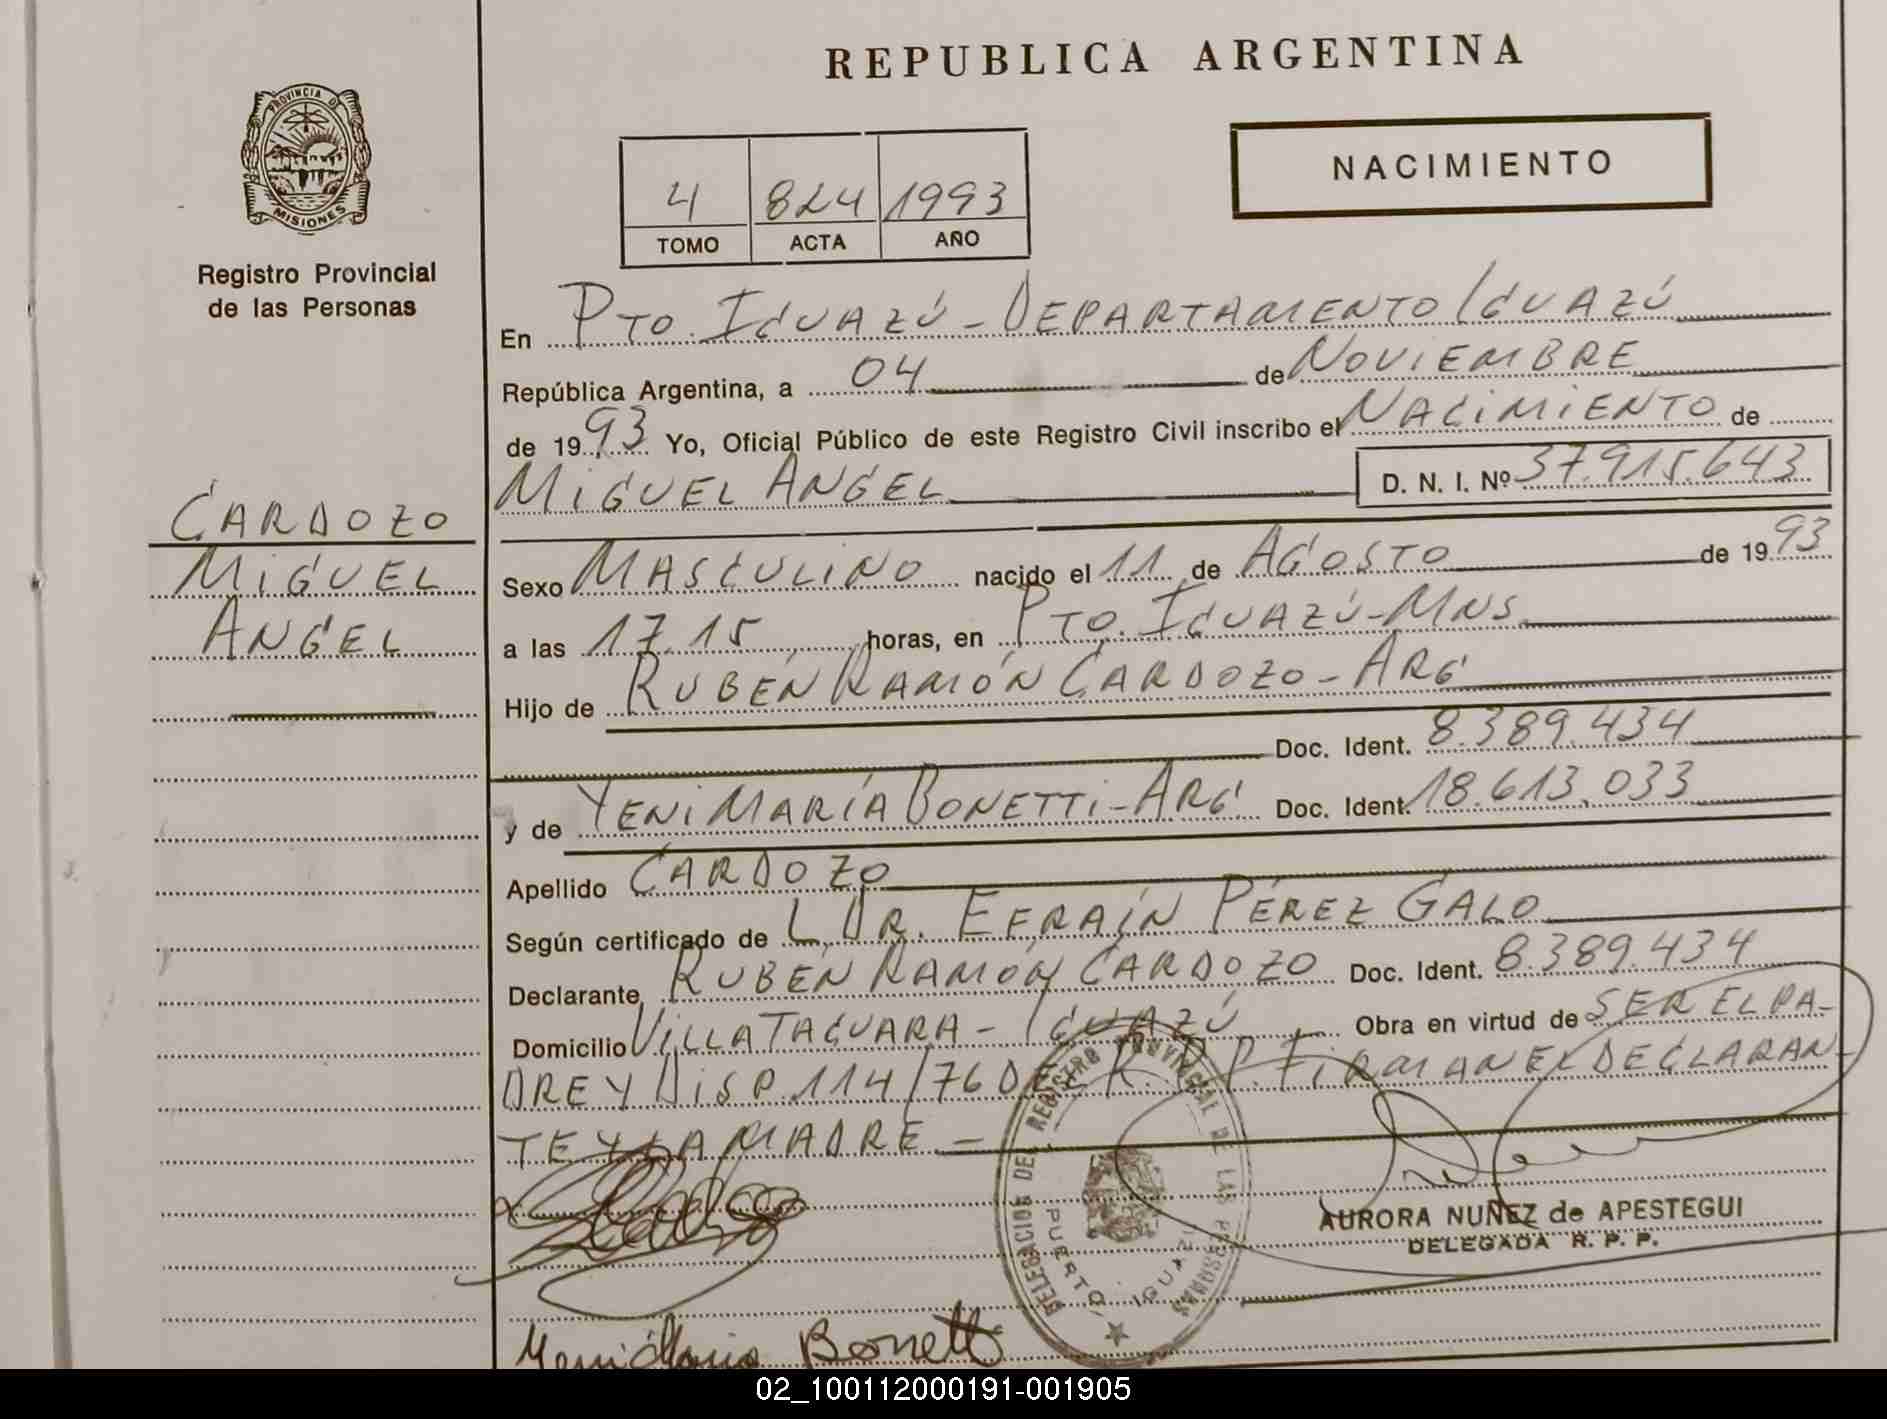 REPUBLICA ARGENTINA
PROVINCIA DE
MISIONES
Registro Provincial
de las Personas
NACIMIENTO
4 824 1993
TOMO ACTA AÑO
En PTO. IGUAZÚ - DEPARTAMENTO IGUAZÚ
República Argentina, a 04 de NOVIEMBRE
de 1993 Yo, Oficial Público de este Registro Civil inscribo el NACIMIENTO de
MIGUEL ANGEL D. N. I. Nº 37.915.643
CARDOZO
MIGUEL
ANGEL
Sexo MASCULINO nacido el 11 de AGOSTO de 1993
a las 17.15 horas, en PTO. IGUAZÚ-MNS
Hijo de RUBÉN RAMÓN CARDOZO - ARG
Doc. Ident. 8.389.434
y de YENI MARÍA BONETTI - ARG Doc. Ident. 18.613.033
Apellido CARDOZO
Según certificado de L, DR. EFRAÍN PÉREZ GALO
Declarante RUBÉN RAMÓN CARDOZO Doc. Ident. 8.389.434
Domicilio VILLA TACUARA - IGUAZÚ Obra en virtud de SER EL PA-
DRE Y DISP. 114/76 DEL R. P. P. FIRMAN EL DECLARAN-
TE Y LA MADRE -
DELEGACION DEL REGISTRO PROVINCIAL DE LAS PERSONAS
PUERTO IGUAZU
AURORA NUÑEZ de APESTEGUI
DELEGADA R. P. P.
Yeni Maria Bonetti
02_100112000191-001905